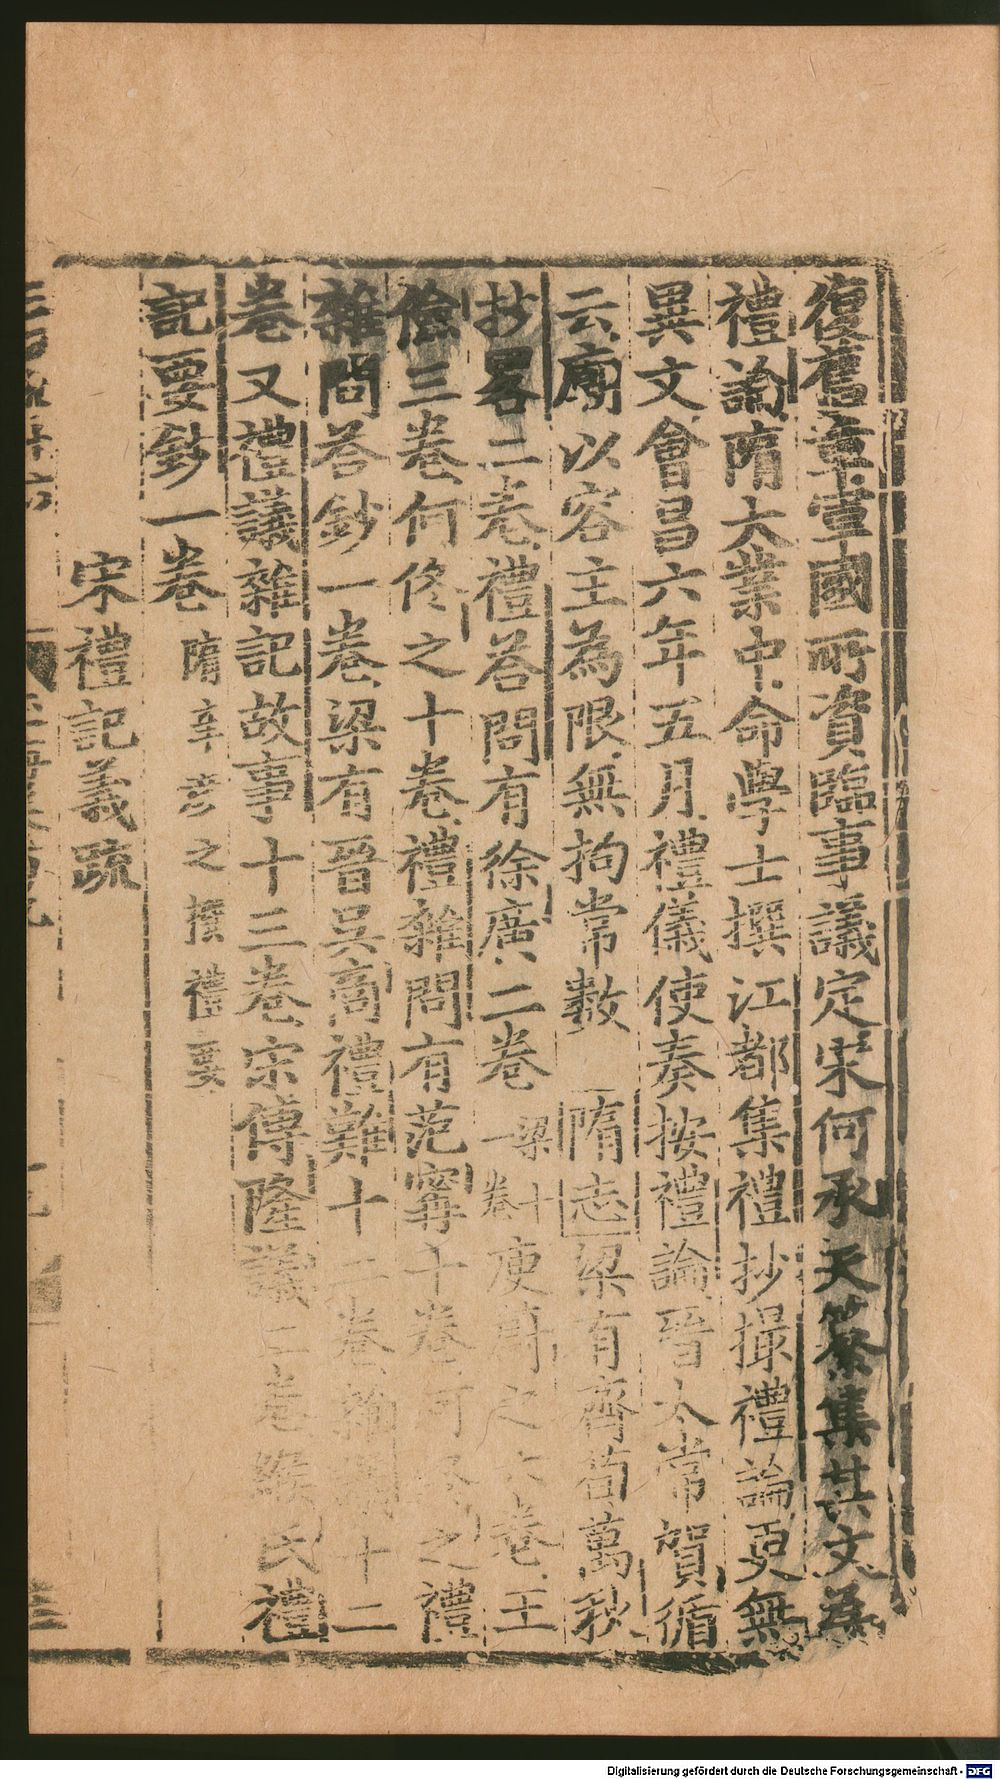 復舊章軍國所資臨事議定宋何承天纂集其文為
禮論隋大業中命學士撰江都集禮抄撮禮論更無
異文會昌六年五月禮儀使奏按禮論晉太常賀循
云廟以容主為限無拘常數 隋志梁有齊荀萬秋
抄畧二卷禮荅問有徐廣二卷 梁十一卷 庾蔚之六卷王
儉三卷何佟之十卷禮雜問有范甯十卷何佟之禮
雜問荅鈔一卷梁有晉吳商禮難十二卷雜議十二
卷又禮議雜記故事十三卷宋傅隆議二卷 氏禮
記要鈔一卷 隋辛彥之撰禮要
宋禮記義疏
Digitalisierung gefördert durch die Deutsche Forschungsgemeinschaft - DFG